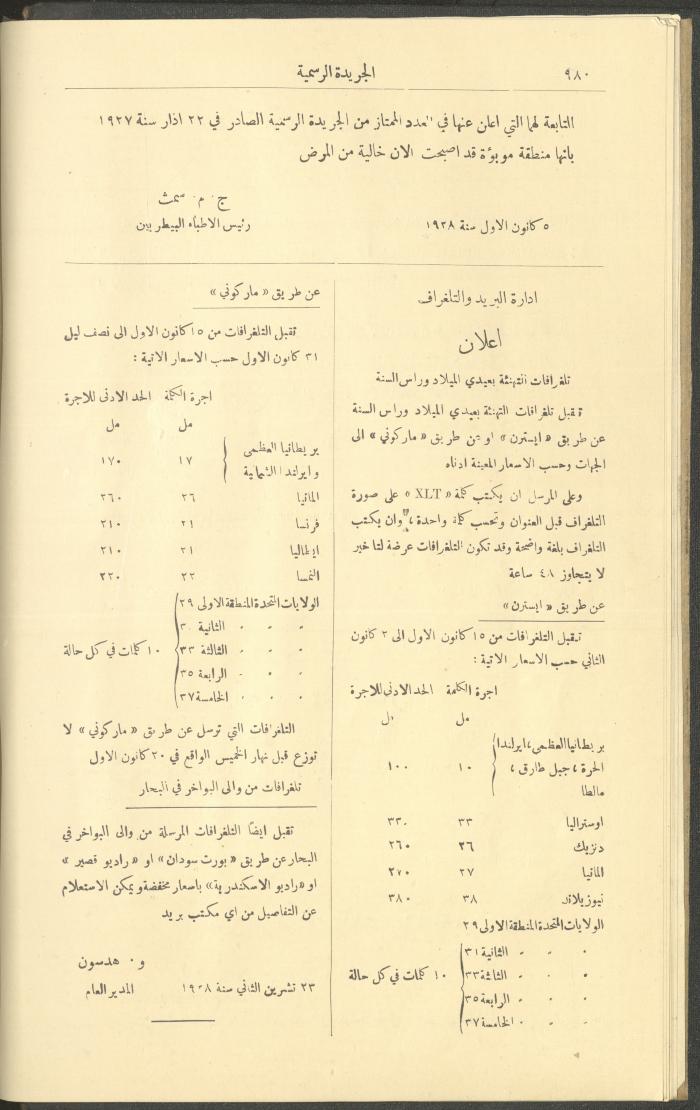 ٩٨٠ الجريدة الرسمية
التابعة لهما التي اعلن عنها في العدد الممتاز من الجريدة الرسمية الصادر في ٢٢ اذار سنة ١٩٢٧
بانها منطقة موبؤة قد اصبحت الان خالية من المرض
ج . م . سمث
٥ كانون الاول سنة ١٩٢٨ رئيس الاطباء البيطريين
ادارة البريد والتلغراف
اعلان
تلغرافات التهنئة بعيدي الميلاد وراس السنة
تقبل تلغرافات التهنئة بعيدي الميلاد وراس السنة
عن طريق «ايسترن» او عن طريق «ماركوني» الى
الجهات وحسب الاسعار المعينة ادناه
وعلى المرسل ان يكتب كلمة «XLT» على صورة
التلغراف قبل العنوان وتحسب كلمة واحدة، وان يكتب
التلغراف بلغة واضحة وقد تكون التلغرافات عرضة لتاخير
لا يتجاوز ٤٨ ساعة
عن طريق «ايسترن»
تقبل التلغرافات من ١٥ كانون الاول الى ٢ كانون
الثاني حسب الاسعار الاتية :
اجرة الكلمة الحد الادنى للاجرة
مل مل
بريطانيا العظمى، ايرلندا
الحرة، جبل طارق، ١٠ ١٠٠
مالطا
اوستراليا ٣٣ ٣٣٠
دنزيك ٢٦ ٢٦٠
المانيا ٢٧ ٢٧٠
نيوزيلاند ٣٨ ٣٨٠
الولايات المتحدة المنطقة الاولى ٢٩
» » » الثانية ٣١
» » » الثالثة ٣٣ ١٠ كلمات في كل حالة
» » » الرابعة ٣٥
» » » الخامسة ٣٧
عن طريق «ماركوني»
تقبل التلغرافات من ١٥ كانون الاول الى نصف ليل
٣١ كانون الاول حسب الاسعار الاتية :
اجرة الكلمة الحد الادنى للاجرة
مل مل
بريطانيا العظمى
وايرلندا الشمالية ١٧ ١٧٠
المانيا ٢٦ ٢٦٠
فرنسا ٢١ ٢١٠
ايطاليا ٢١ ٢١٠
النمسا ٢٢ ٢٢٠
الولايات المتحدة المنطقة الاولى ٢٩
» » » الثانية
» » » الثالثة ٣٣ ١٠ كلمات في كل حالة
» » » الرابعة ٣٥
» » » الخامسة ٣٧
التلغرافات التي ترسل عن طريق «ماركوني» لا
توزع قبل نهار الخميس الواقع في ٢٠ كانون الاول
تلغرافات من والى البواخر في البحار
تقبل ايضا التلغرافات المرسلة من والى البواخر في
البحار عن طريق «بورت سودان» او «راديو قصير»
او «راديو الاسكندرية» باسعار مخفضة ويمكن الاستعلام
عن التفاصيل من اي مكتب بريد
و . هدسون
٢٣ تشرين الثاني سنة ١٩٢٨ المدير العام